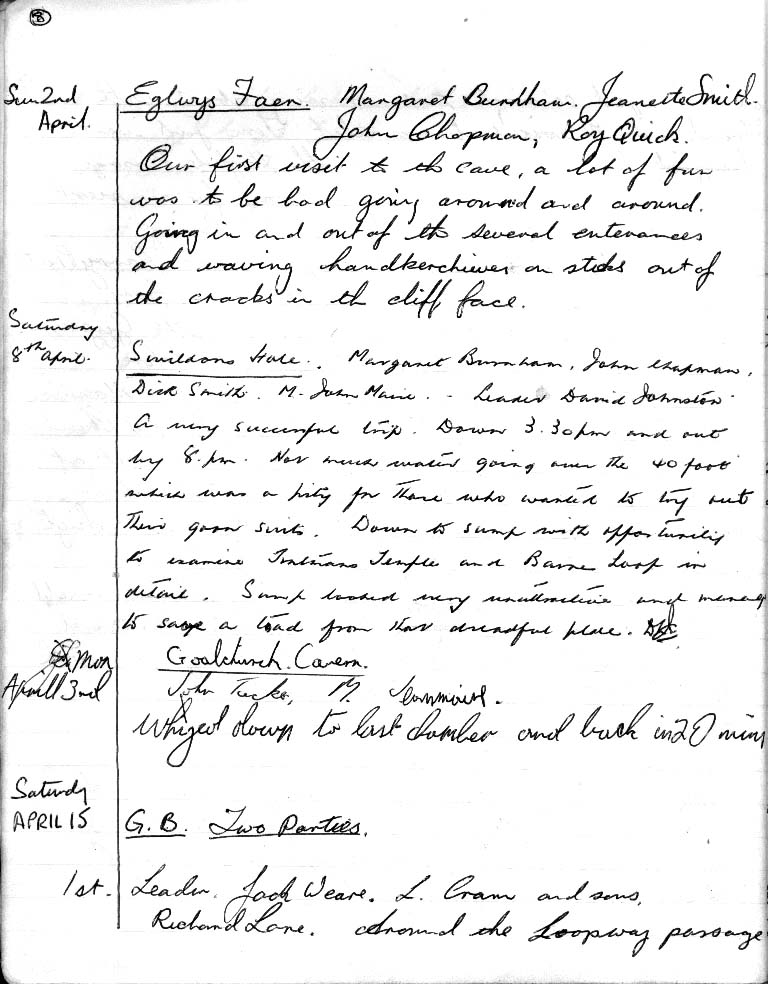 8
Sun 2nd April. Eglwys Faen. Margaret Burnham. Jeanette Smith.
John Chapman, Roy Quick.
Our first visit to th cave, a lot of fun
was to be had going around and around.
Going in and out of th several enterances
and waving handkerchieves on sticks out of
the cracks in th cliff face.
Saturday 8th April. Swildons Hole. Margaret Burnham, John Chapman,
Dick Smith. M. John - Leader David Johnston
A very successful trip. Down 3.30pm and out
by 8.pm. Not much water going over the 40 foot
which was a pity for those who wanted to try out
their goon suits. Down to sump with opportunity
to examine Tratmans Temple and Barnes Loop in
detail. Sump looked very unattractive and managed
to save a toad from that dreadful place.
Mon April 3rd Goatchurch. Cavern.
John Tucker, M.
Whized down to last chamber and back in 20 mins
Saturday APRIL 15 G.B. Two Parties.
1st. Leader. Jack Weare. L. Cram and sons,
Richard Lane. Around the Loopway passage